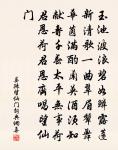 玉池波浪碧如鳞露莲
新清歌一曲翠眉颦舞
华茵满酌兰英酒须知
献寿千春太平无事荷
君恩荷君恩齐唱望仙
门